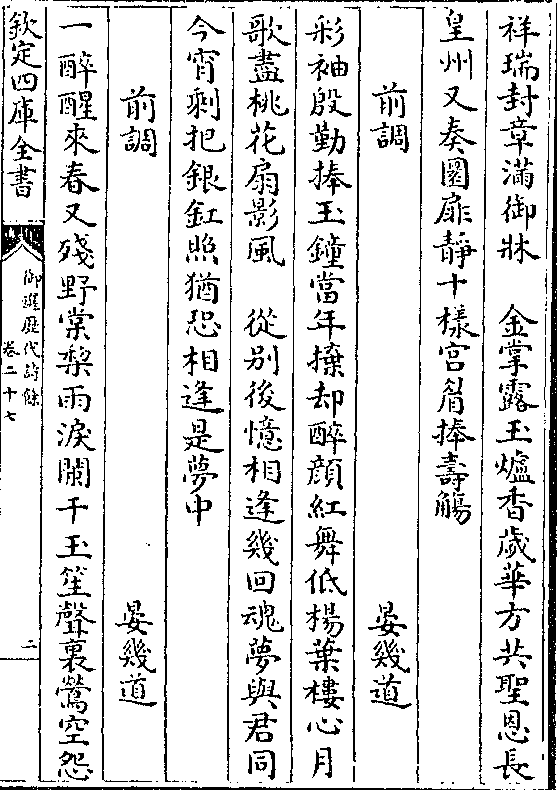 祥瑞封章滿御牀　金掌露玉爐香歲華方共聖恩長
皇州又奏圜扉靜十樣宫眉捧壽觴
前調　晏幾道
彩袖殷勤捧玉鐘當年㨿却醉顔紅舞低楊葉樓心月
歌盡桃花扇影風　從别後憶相逢幾回魂夢與君同
今宵剩把銀釭照猶恐相逢是夢中
前調　晏幾道
一醉醒來春又殘野棠梨雨淚闌干玉笙聲裏鶯空怨
欽定四庫全書
御選歷代詩餘
卷二十七
二